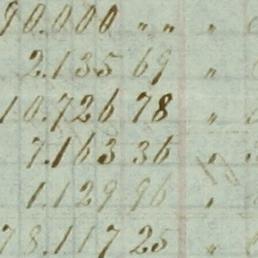 90.000 〃 〃 〃
2.135 69 〃
10.726 78 〃
7.163 36 〃
1.129 96 〃
78.117 25 〃